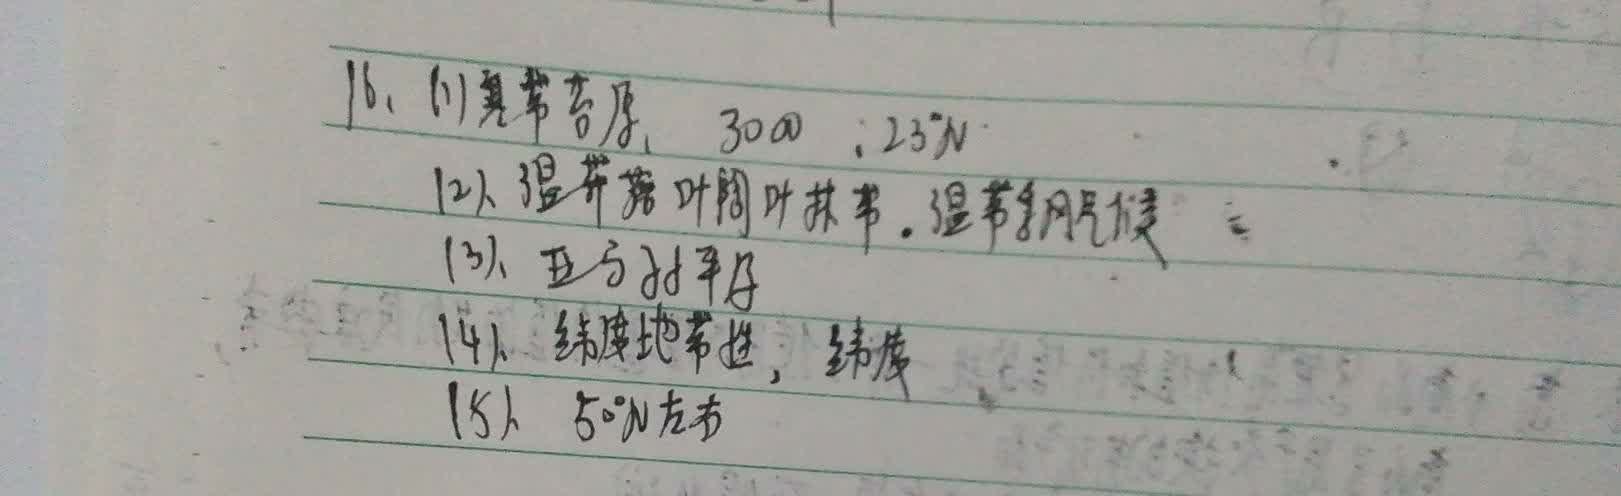 16、(1)寒带苔原、 3000 ；23°N
(2)、温带落叶阔叶林带．温带季风气候
(3)、亚马孙平原
(4)、纬度地带性，纬度
(5)、50°N左右